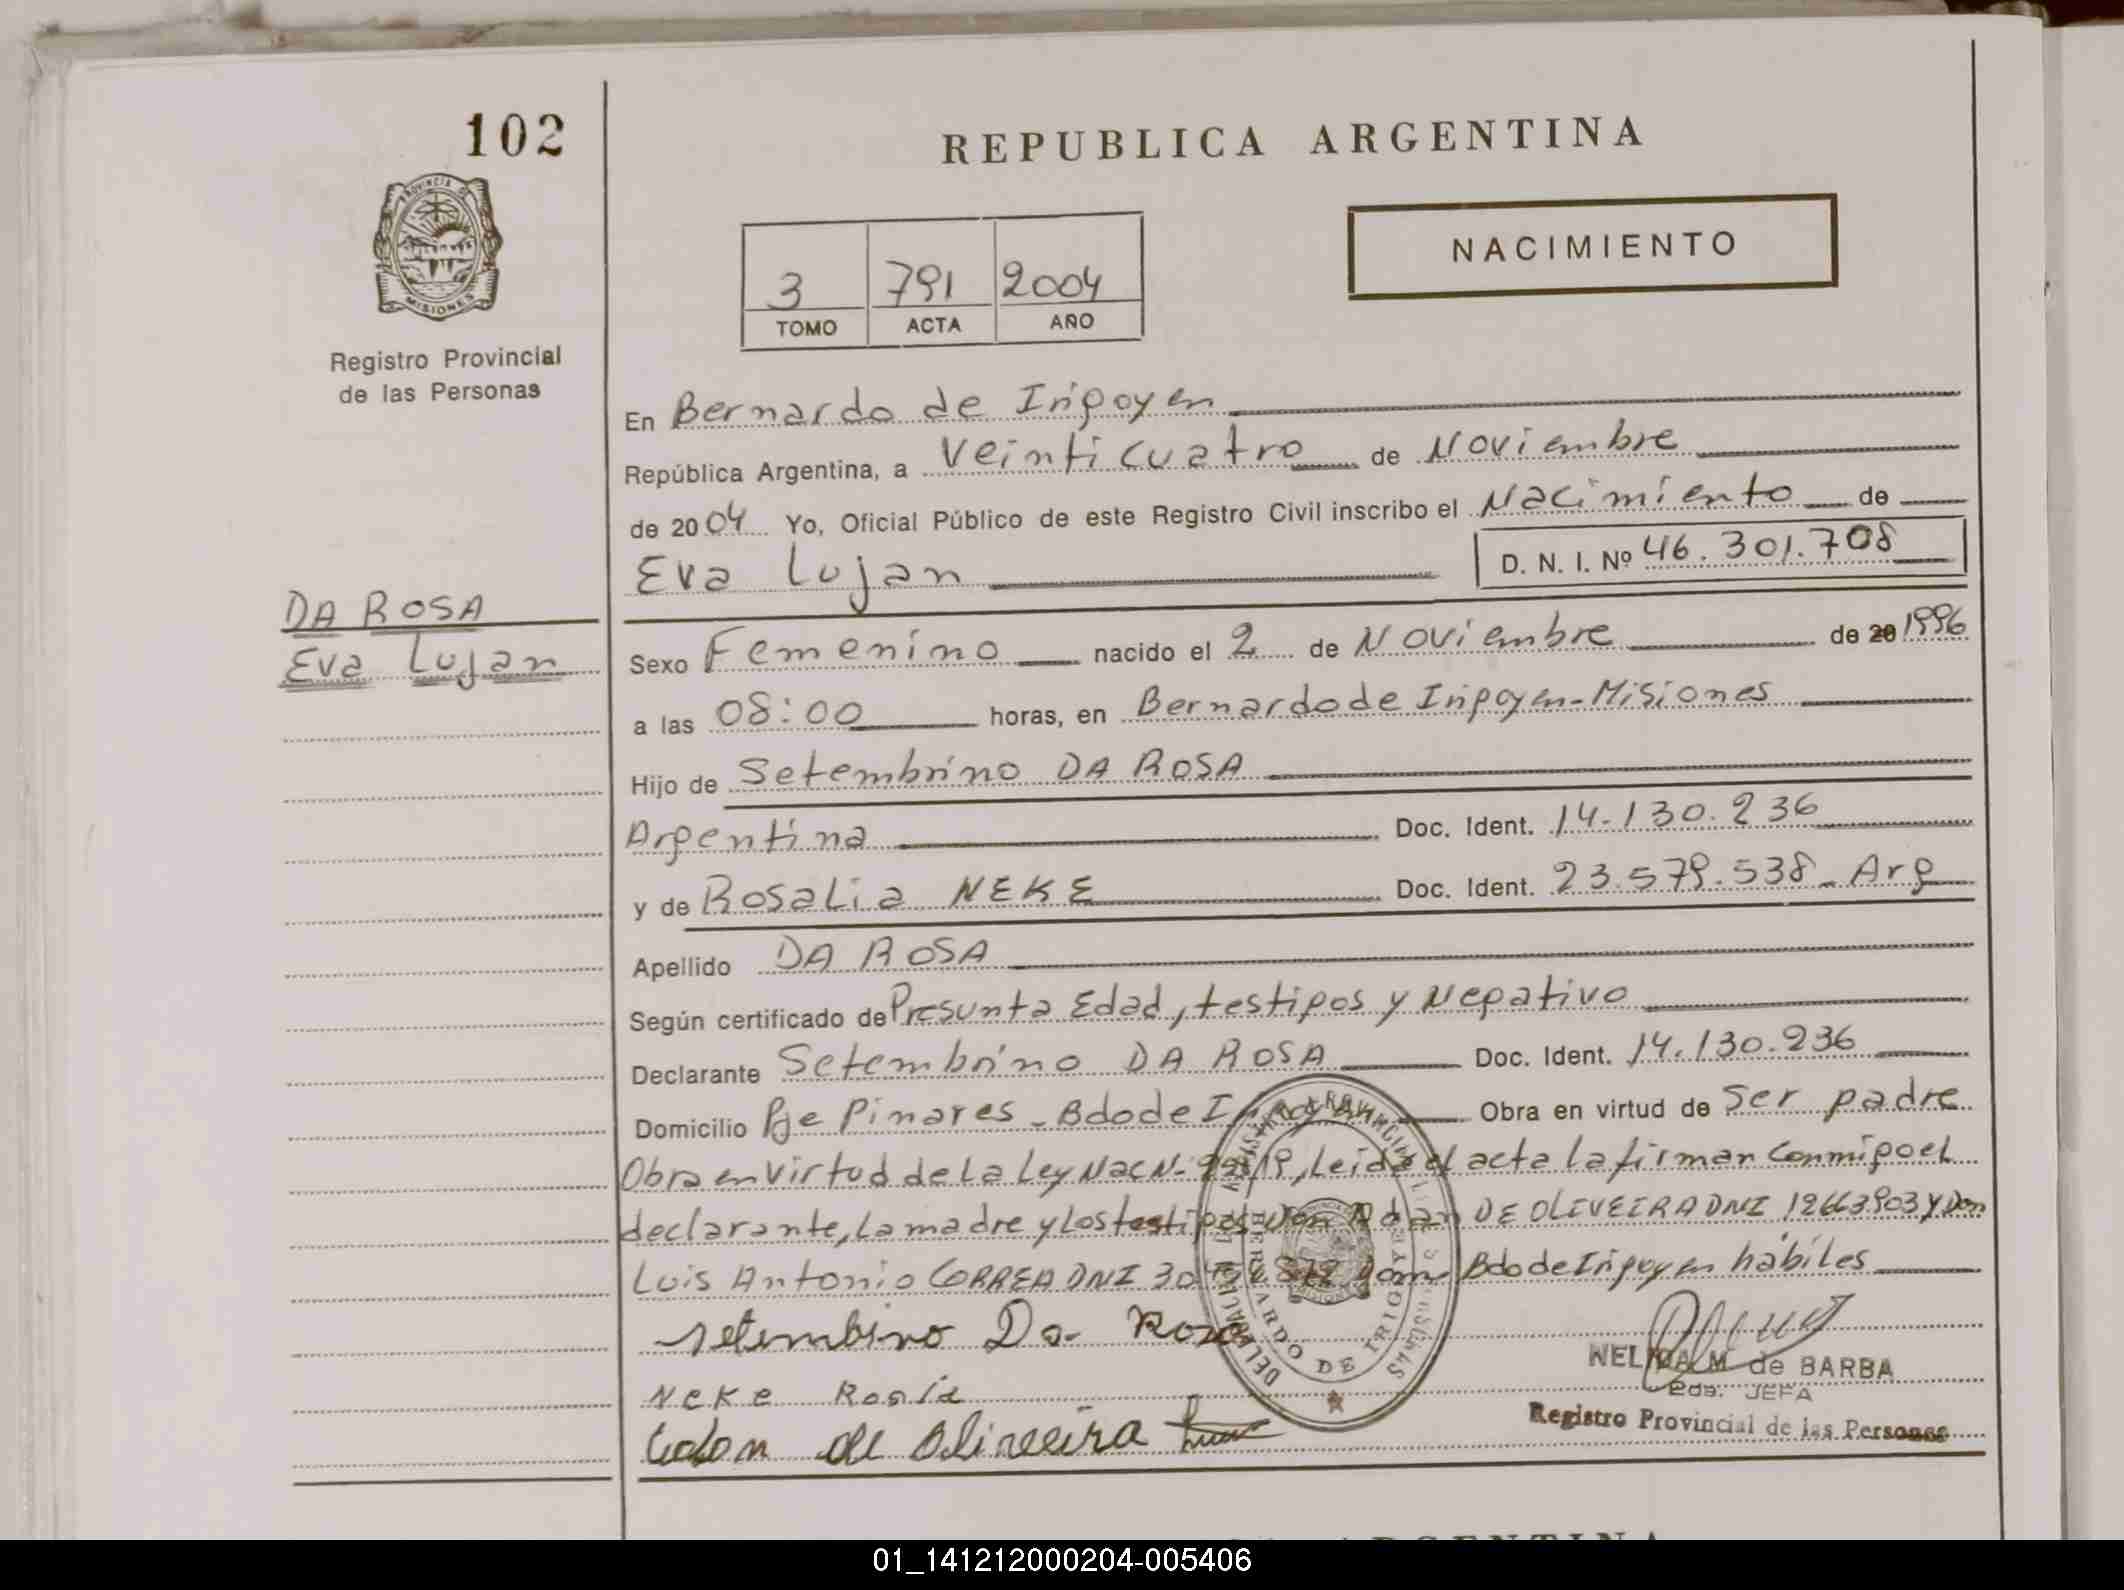 102
REPUBLICA ARGENTINA
PROVINCIA DE
MISIONES
NACIMIENTO
3 791 2004
TOMO ACTA AÑO
Registro Provincial
de las Personas
En Bernardo de Irigoyen
República Argentina, a Veinticuatro de Noviembre
de 2004 Yo, Oficial Público de este Registro Civil inscribo el Nacimiento de
Eva Lujan D. N. I. Nº 46.301.708
DA ROSA
Eva Lujan
Sexo Femenino nacido el 2 de Noviembre de 20 1996
a las 08:00 horas, en Bernardo de Irigoyen-Misiones
Hijo de Setembrino DA ROSA
Argentina Doc. Ident. 14.130.236
y de Rosalia NEKE Doc. Ident. 23.579.538 - Arg
Apellido DA ROSA
Según certificado de Presunta Edad, testigos y Negativo
Declarante Setembrino DA ROSA Doc. Ident. 14.130.236
Domicilio Pje Pinares - Bdo de Irigoyen Obra en virtud de Ser padre
Obra en Virtud de la Ley Nac N- Leida el acta la firman Conmigo el
declarante, la madre y los testigos Don DE OLIVEIRA DNI 12663903 y Don
Luis Antonio CORREA DNI Dom. Bdo de Irigoyen hábiles
Setembrino Da Rosa
NELIDA M de BARBA
Neke
JEFA
de Oliveira
Registro Provincial de las Personas
BERNARDO DE IRIGOYEN
ARGENTINA
01_141212000204-005406